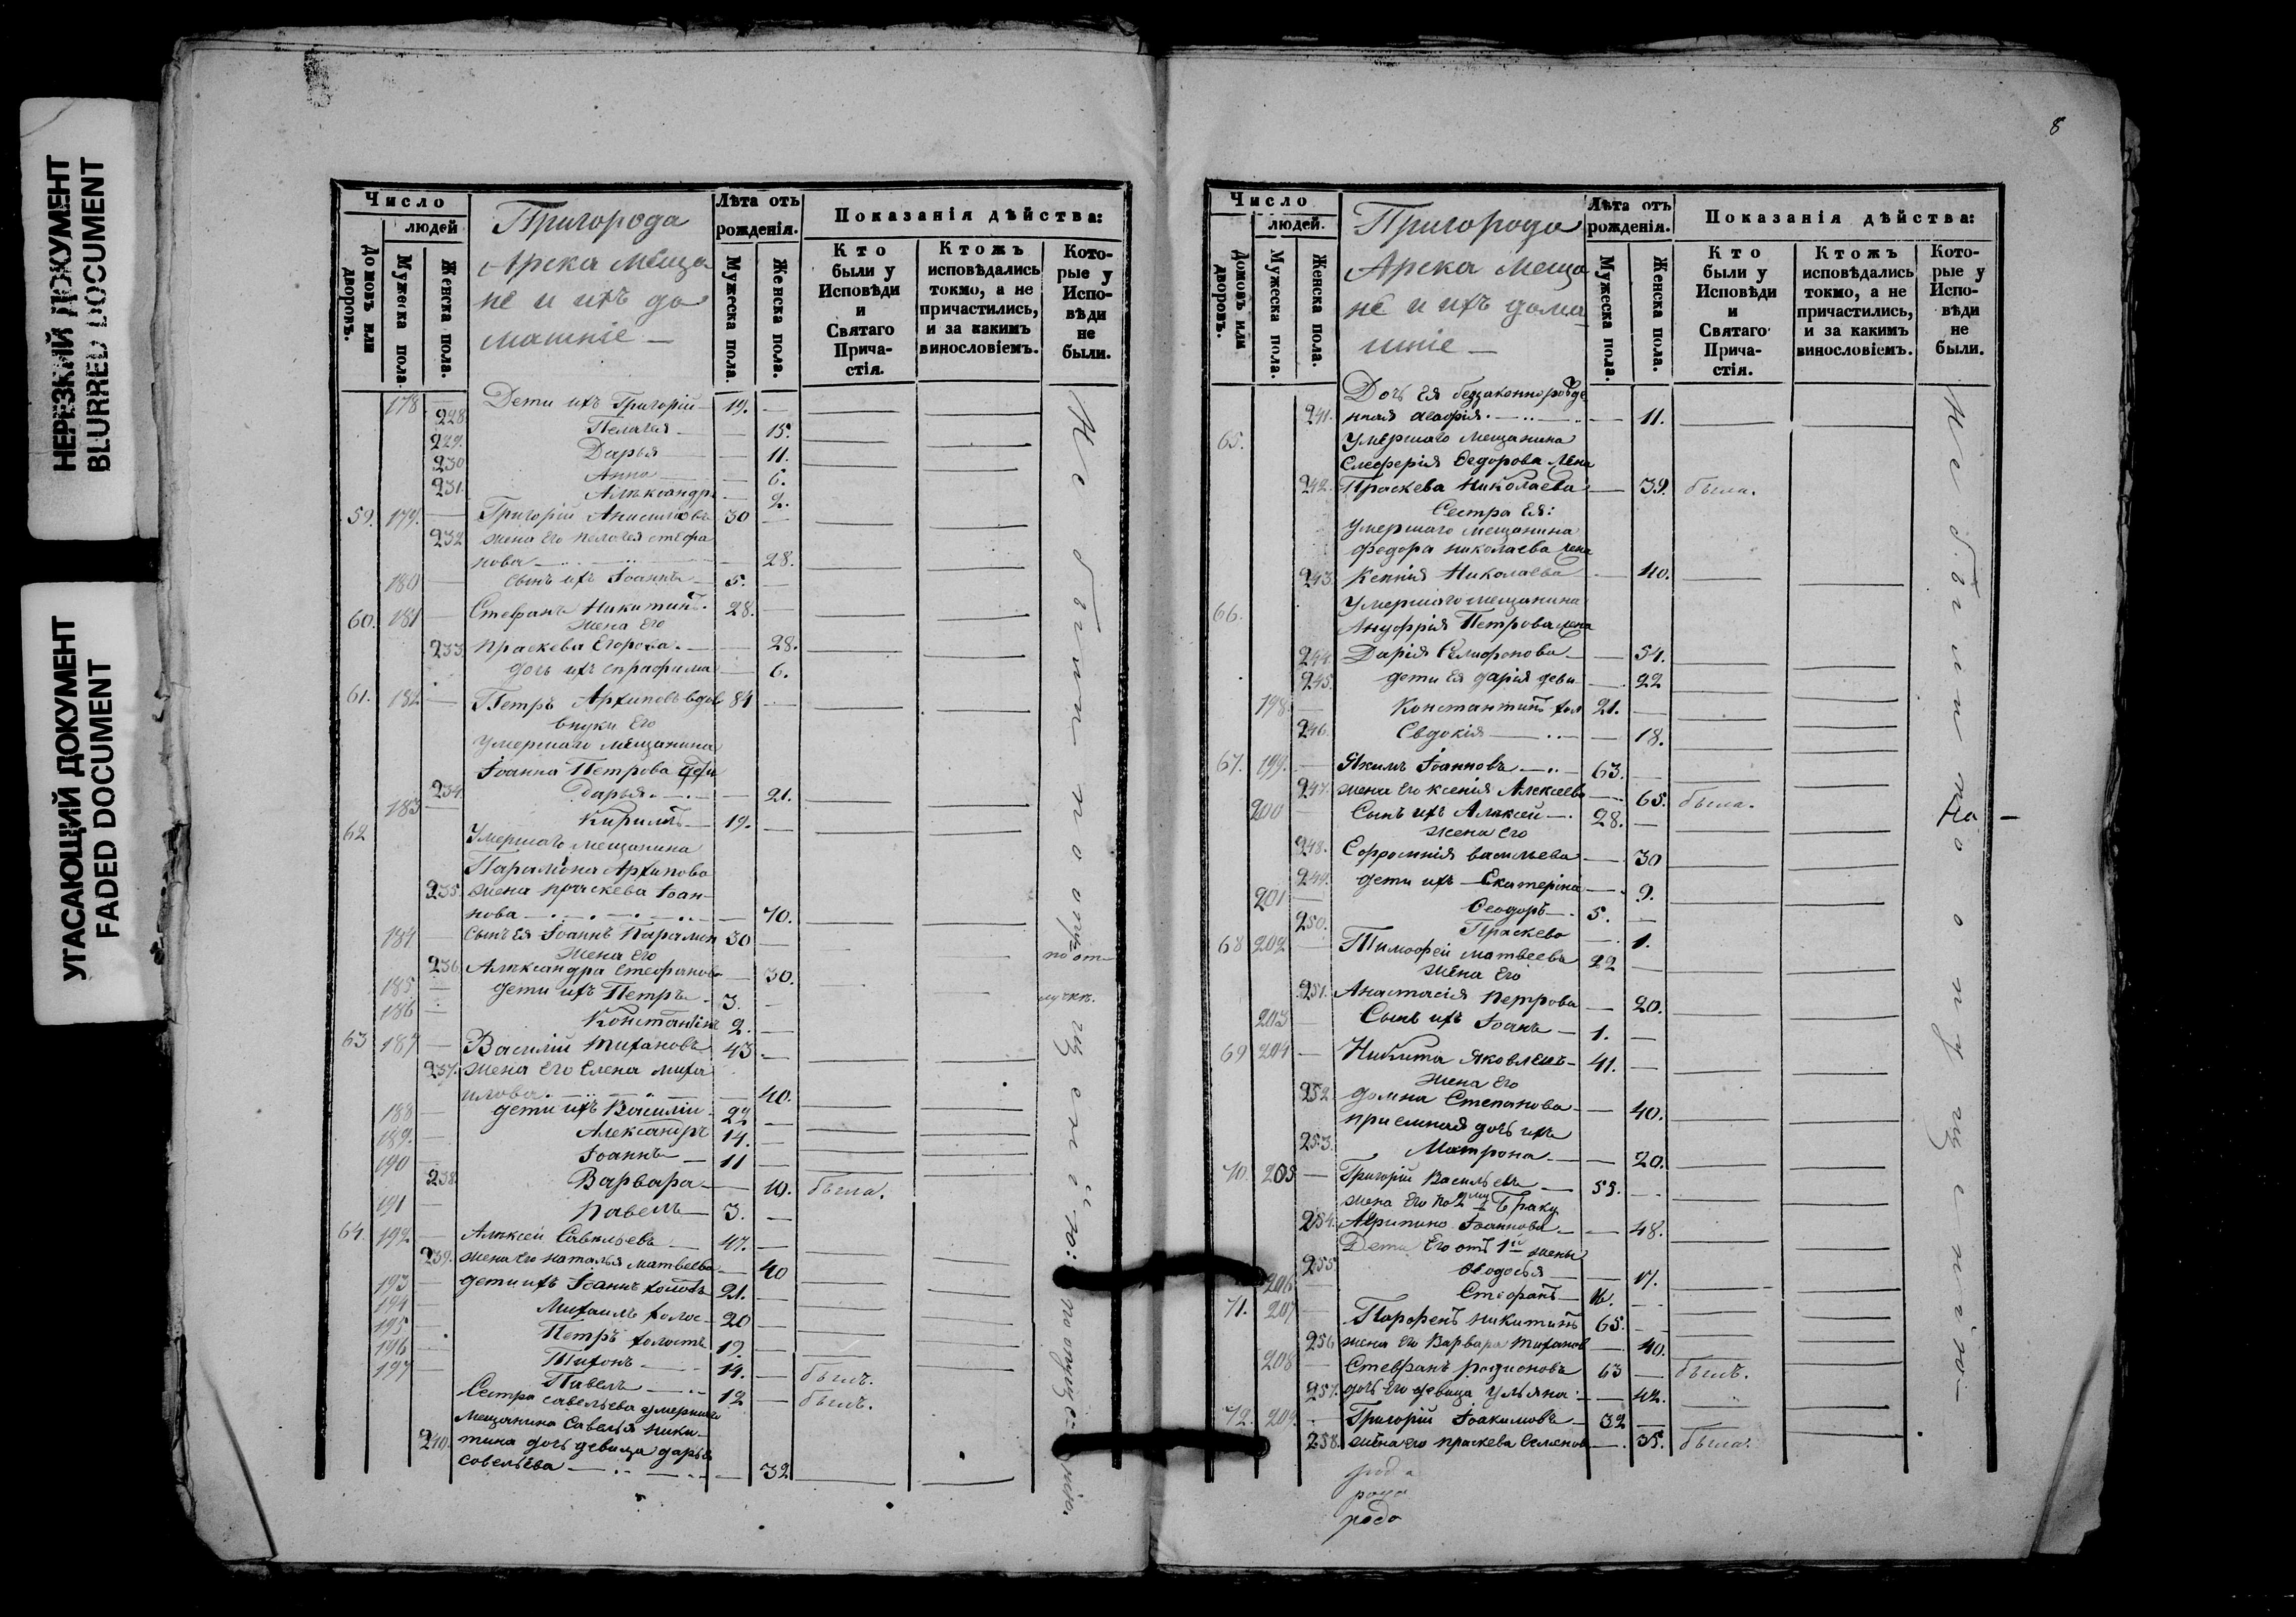 НЕРЕЗКИЙ ДОКУМЕНТ
BLURRED DOCUMENT
УГАСАЮЩИЙ ДОКУМЕНТ
FADED DOCUMENT
Число
людей
Домовъ или дворовъ.
Мужеска пола.
Женска пола.
Пригорода
Арска Меща
не и ихъ до
машніе —
Лѣта отъ рожденія.
Мужеска пола.
Женска пола.
Показанія дѣйства:
Кто были у Исповѣди и Святаго Причастія.
Ктожъ исповѣдались токмо, а не причастились, и за какимъ винословіемъ.
Которые у Исповѣди не были.
178 — Дети ихъ Григорій — 19. —
228. Пелагея — 15.
229. Дарья — 11.
230 Анна — 6.
231. Александра — 2.
59. 179. — Григорій Анисимовъ 30 —
232 жена его Пелагея Стефа
нова — 28.
180 — сынъ ихъ Іоаннъ — 5. —
60. 181 — Стефанъ Никитинъ. 28. —
жена его
233 Праскева Егорова. — 28.
дочь ихъ Серафима — 6.
61. 182 — Петръ Архиповъ вдов 84 —
внуки его
умершаго мещанина
Іоанна Петрова дети
234. Дарья. — 21.
183 — Кирилъ — 19. —
62 Умершаго мещанина
Парамона Архипова
235. жена Праскева Іоан
нова — 70.
184 — сынъ ея Іоаннъ Парамон 30 —
жена его
236. Александра Стефанова — 30.
185 — дети ихъ Петръ 3. —
186 — Константинъ 2. —
63 187 — Василій Тихановъ 43 —
237. жена его Елена Миха
илова. — 40.
188 — дети ихъ Василій 22 —
189. — Александръ 14. —
190 — Іоаннъ — 11 —
238. Варвара — 10. была.
191 — Павелъ — 3. —
64. 192 — Алексей Савельевъ 47. —
239. жена его Наталья Матвеева — 40
193 — дети ихъ Іоаннъ холостъ 21. —
194 — Михаилъ холос — 20 —
195 — Петръ холостъ 19. —
196 — Тихонъ — 14. — былъ.
197 — Павелъ — 12 — былъ.
Сестра Савельева умершаго
мещанина Савелья Ники
240. тина дочь девица Дарья
Савельева — 32
Не были по опущенію:
по от—
лучкѣ.
по опущенію.
8
Число
людей.
Домовъ или дворовъ.
Мужеска пола.
Женска пола.
Пригорода
Арска Меща
не и ихъ дома
шніе —
Лѣта отъ рожденія.
Мужеска пола.
Женска пола.
Показанія дѣйства:
Кто были у Исповѣди и Святаго Причастія.
Ктожъ исповѣдались токмо, а не причастились, и за какимъ винословіемъ.
Которые у Исповѣди не были.
Дочь ея беззаконнорожде
241. нная Агафія. — 11.
65. Умершаго мещанина
Елеферія Федорова жена
242. Праскева Николаева — 39. была.
Сестра ея:
умершаго мещанина
Федора Николаева жена
243. Ксенія Николаева — 40.
66. Умершаго мещанина
Ануфрія Петрова жена
244. Дарія — 54.
245. дети ея Дарія деви — 22
198. — Константинъ хол 21. —
246. Евдокія — 18.
67. 199. — Якимъ Іоанновъ — 63. —
247. жена его Ксенія Алексеева — 65. была.
200 — Сынъ ихъ Алексей — 28. —
жена его
248. Софронія Васильева — 30
249. дети ихъ — Екатерина — 9.
201 — Феодоръ — 5. —
250. Праскева — 1.
68 202 — Тимофей Матвеевъ 22 —
жена его
251. Анастасія Петрова — 20.
203 — Сынъ ихъ Іоанъ — 1. —
69 204 — Никита Яковлевъ — 41. —
жена его
252. Домна Степанова — 40.
приемная дочь ихъ
253. Матрона — 20.
70. 205 — Григорій Васильевъ — 55. —
жена его по 2му браку
254. Агрипина Іоаннова — 48.
Дети его отъ 1й жены
255. Федосья — 17.
206 — Стефанъ — 16. —
71. 207 — Парфенъ Никитинъ 65. —
256 жена его Варвара Тиханов — 40.
208 — Стефанъ Родионовъ 63 — былъ.
257. дочь его девица Ульяна — 42.
72. 209. — Григорій Іоакимовъ — 32 —
258. жена его Праскева Семенов — 35. была.
Не были по опущенію
На —
рода
родо